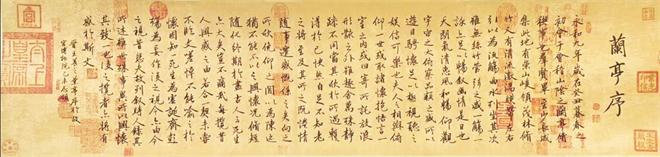 蘭亭序
永和九年歲在癸丑暮春之
初會于會稽山陰之蘭亭脩
禊事也群賢畢至少長咸
集此地有崇山峻領茂林脩
竹又有清流激湍映帶左右
引以為流觴曲水列坐其次
雖無絲竹管弦之盛一觴一
詠亦足以暢敘幽情是日也
天朗氣清惠風和暢仰觀
宇宙之大俯察品類之盛所以
遊目騁懷足以極視聽之
娛信可樂也夫人之相與俯
仰一世或取諸懷抱悟言一
室之內或因寄所託放浪
形骸之外雖趣舍萬殊靜
躁不同當其欣於所遇暫
得於己快然自足不知老
之將至及其所之既惓情
隨事遷感慨係之矣向之
所欣俛仰之間以為陳迹
猶不能不以之興懷況脩短
隨化終期於盡古人云死生
亦大矣豈不痛哉每攬昔
人興感之由若合一契未嘗
不臨文嗟悼不能喻之於
懷固知一死生為虛誕齊彭
殤為妄作後之視今亦由今
之視昔悲夫故列敘時人錄其
所述雖世殊事異所以興懷
其致一也後之攬者亦將有
感於斯文